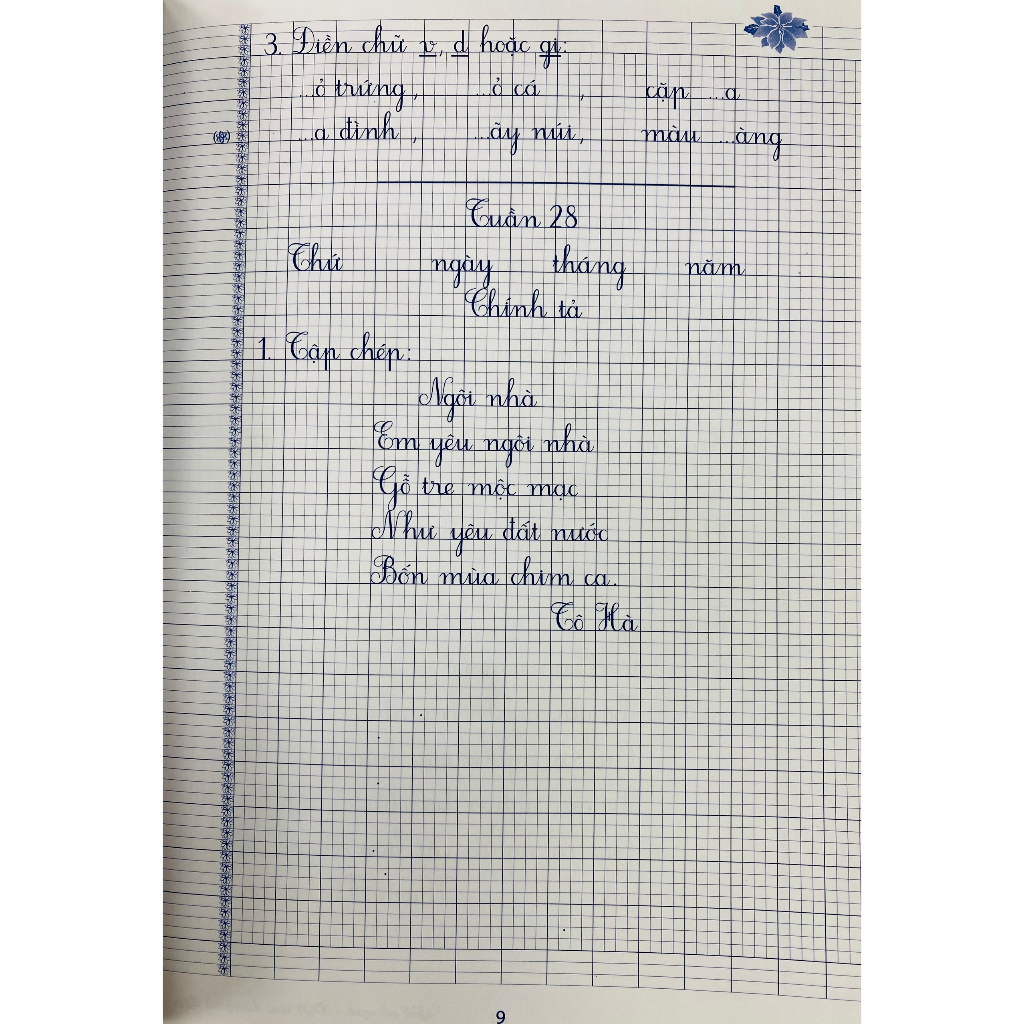 3. Điền chữ v, d hoặc gi:
...ỏ trứng, ...ỏ cá , cặp ...a
...a đình , ...ãy núi, màu ...àng
Tuần 28
Thứ ngày tháng năm
Chính tả
1. Tập chép:
Ngôi nhà
Em yêu ngôi nhà
Gỗ tre mộc mạc
Như yêu đất nước
Bốn mùa chim ca.
Tô Hà
9